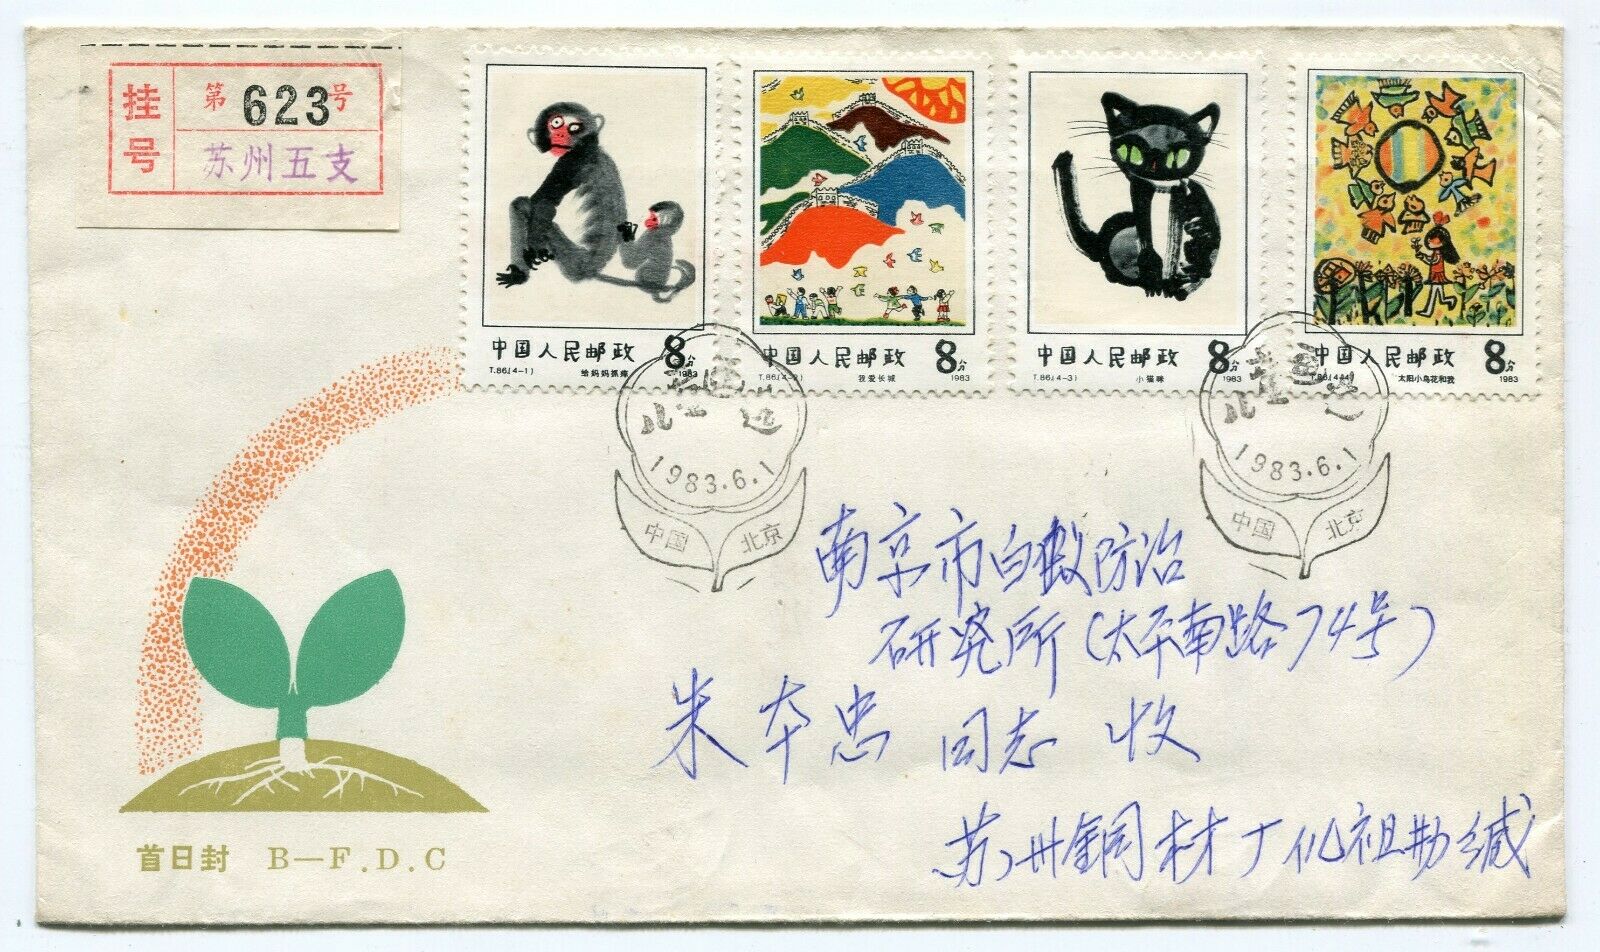 挂号
第623号
苏州五支
中国人民邮政 8分
T.86.(4-1) 给妈妈抓痒 1983
中国人民邮政 8分
T.86.(4-2) 我爱长城 1983
中国人民邮政 8分
T.86.(4-3) 小猫咪 1983
中国人民邮政 8分
T.86.(4-4) 太阳小鸟花和我 1983
儿童画选
1983.6.1
中国 北京
儿童画选
1983.6.1
中国 北京
南京市白蚁防治
研究所(太平南路74号)
朱本忠 同志 收
苏州铜材厂仉祖勋缄
首日封 B—F.D.C